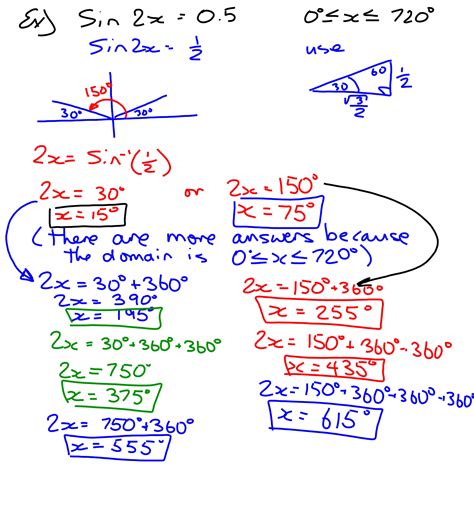 Ex) Sin 2x = 0.5 0° ≤ x ≤ 720°
Sin2x = 1/2 use
150°
30° 30°
30 60 1/2
√3/2
2x = Sin⁻¹(1/2)
2x = 30° or 2x = 150°
x = 15° x = 75°
(there are more answers because
the domain is 0° ≤ x ≤ 720°)
2x = 30° + 360° 2x = 150° + 360°
2x = 390°
x = 195° x = 255°
2x = 30° + 360° + 360° 2x = 150° + 360° + 360°
2x = 750° x = 435°
x = 375° 2x = 150° + 360° + 360° + 360°
2x = 750° + 360° x = 615°
x = 555°